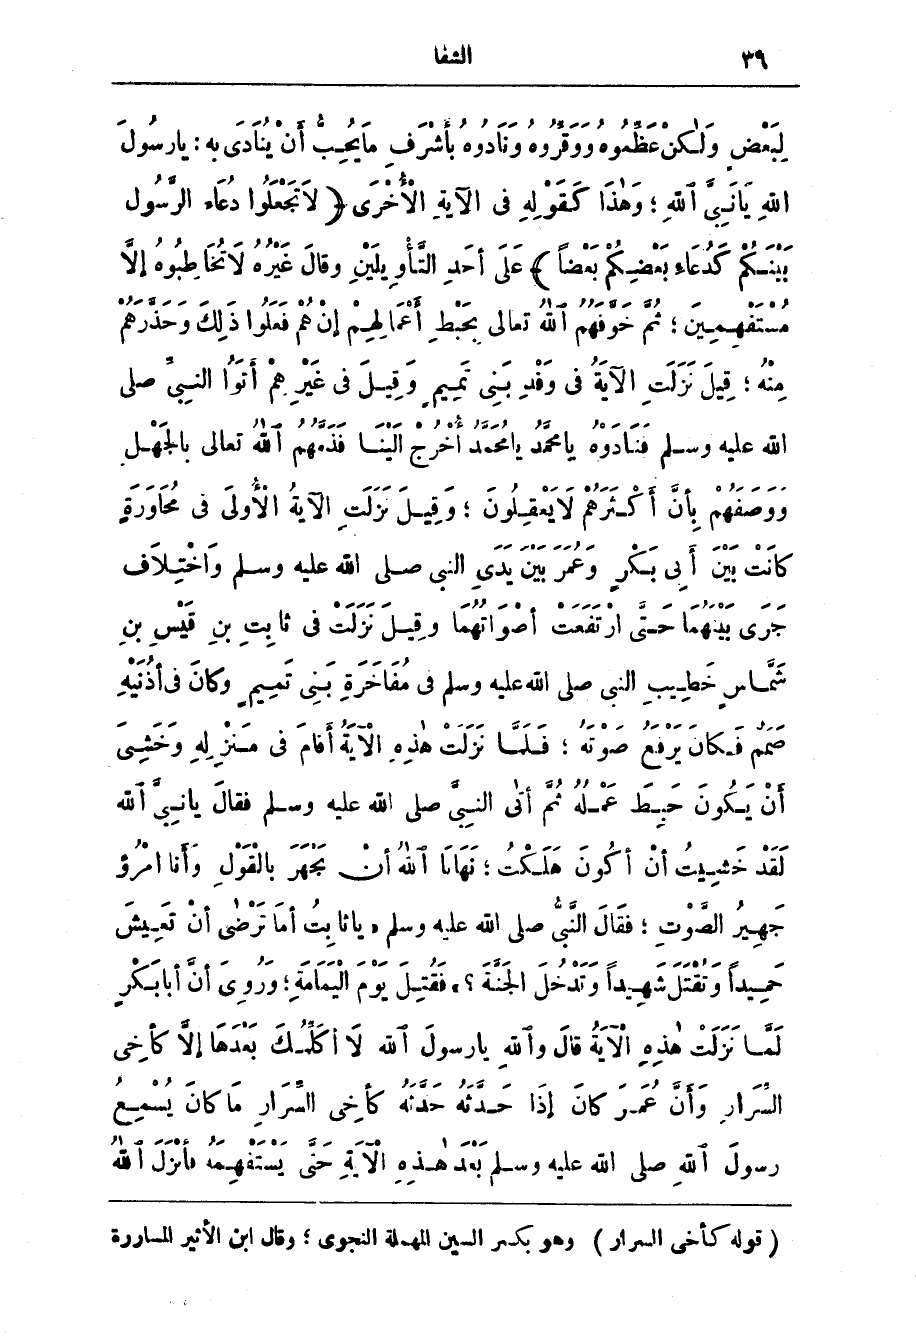 ٣٩ الشفا
لِبَعْضٍ وَلٰكِنْ عَظِّمُوهُ وَوَقِّرُوهُ وَنَادُوهُ بِأَشْرَفِ مَايُحِبُّ أَنْ يُنَادَى بِهِ : يارسُولَ
اللهِ يَانَبِيَّ ٱللهِ ؛ وَهٰذَا كَقَوْلِهِ فى الآيةِ الْأُخْرَى ﴿ لَا تَجْعَلُوا دُعَاءَ الرَّسُولِ
بَيْنَكُمْ كَدُعَاءِ بَعْضِكُمْ بَعْضاً ﴾ عَلَى أحَدِ التَّأْوِيلَيْنِ وقالَ غَيْرُهُ لَا تُخَاطِبُوهُ إلَّا
مُسْتَفْهِمِينَ ؛ ثُمَّ خَوَّفَهُمُ ٱللهُ تعالى بِحَبْطِ أَعْمَالِهِمْ إنْ هُمْ فَعَلُوا ذٰلِكَ وَحَذَّرَهُمْ
مِنْهُ ؛ قِيلَ نَزَلَتِ الآيَةُ فى وَفْدِ بَنِى تَمِيمٍ وَقِيلَ فى غَيْرِهِمْ أَتَوُا النبىَّ صلى
الله عليه وسلم فَنَادَوْهُ يامُحَمَّدُ يامُحَمَّدُ اُخْرُجْ الَيْنَا فَذَمَّهُم ٱللهُ تعالى بِالْجَهْلِ
وَوَصَفَهُمْ بِأنَّ أَكْثَرَهُمْ لَايَعْقِلُونَ ؛ وَقِيلَ نَزَلَتِ الآيةُ الْأُولَى فى مُحَاوَرَةٍ
كانَتْ بَيْنَ أَبِى بَكْرٍ وَعُمَرَ بَيْنَ يَدَىِ النبى صلى الله عليه وسلم وَاخْتِلَافٍ
جَرَى بَيْنَهُمَا حَتَّى ارْتَفَعَتْ أصْوَاتُهُمَا وقِيلَ نَزَلَتْ فى ثابِتِ بنِ قَيْسِ بنِ
شَمَّاسٍ خَطِيبِ النبى صلى الله عليه وسلم فى مُفَاخَرَةِ بَنِى تَمِيمٍ وكانَ فى أذُنَيْهِ
صَمَمٌ فَكانَ يَرْفَعُ صَوْتَهُ ؛ فَلَمَّا نَزَلَتْ هٰذِهِ الْآيَةُ أقامَ فى مَنْزِلِهِ وَخَشِىَ
أَنْ يَكُونَ حَبِطَ عَمَلُهُ ثُمَّ أتَى النبىَّ صلى الله عليه وسلم فقالَ يانبىَّ ٱلله
لَقَدْ خَشِيتُ أنْ أكُونَ هَلَكْتُ ؛ نَهَانَا ٱللهُ أنْ نَجْهَرَ بالْقَوْلِ وَأنا امْرُؤٌ
جَهِيرُ الصَّوْتِ ؛ فقَالَ النَّبىُّ صلى الله عليه وسلم « ياثابِتُ أمَا تَرْضٰى أنْ تَعِيشَ
حَمِيداً وَتُقْتَلَ شَهِيداً وَتَدْخُلَ الجَنَّةَ ؟ » فَقُتِلَ يَوْمَ الْيَمَامَةِ ؛ وَرُوِىَ أنَّ أبابَكْرٍ
لَمَّا نَزَلَتْ هٰذِهِ الْآيَةُ قالَ وٱللهِ يارسولَ ٱلله لَا أُكَلِّمُكَ بَعْدَهَا إلَّا كأَخِى
السِّرَارِ وَأَنَّ عُمَرَ كانَ إذَا حَدَّثَهُ حَدَّثَهُ كأَخِى السِّرَارِ مَا كانَ يُسْمِعُ
رسولَ ٱللهِ صلى الله عليه وسلم بَعْدَ هٰذِهِ الْآيَةِ حَتَّى يَسْتَفْهِمَهُ فأنْزَلَ ٱللهُ
( قوله كأخى السرار ) وهو بكسر السين المهملة النجوى ؛ وقال ابن الأثير المساررة